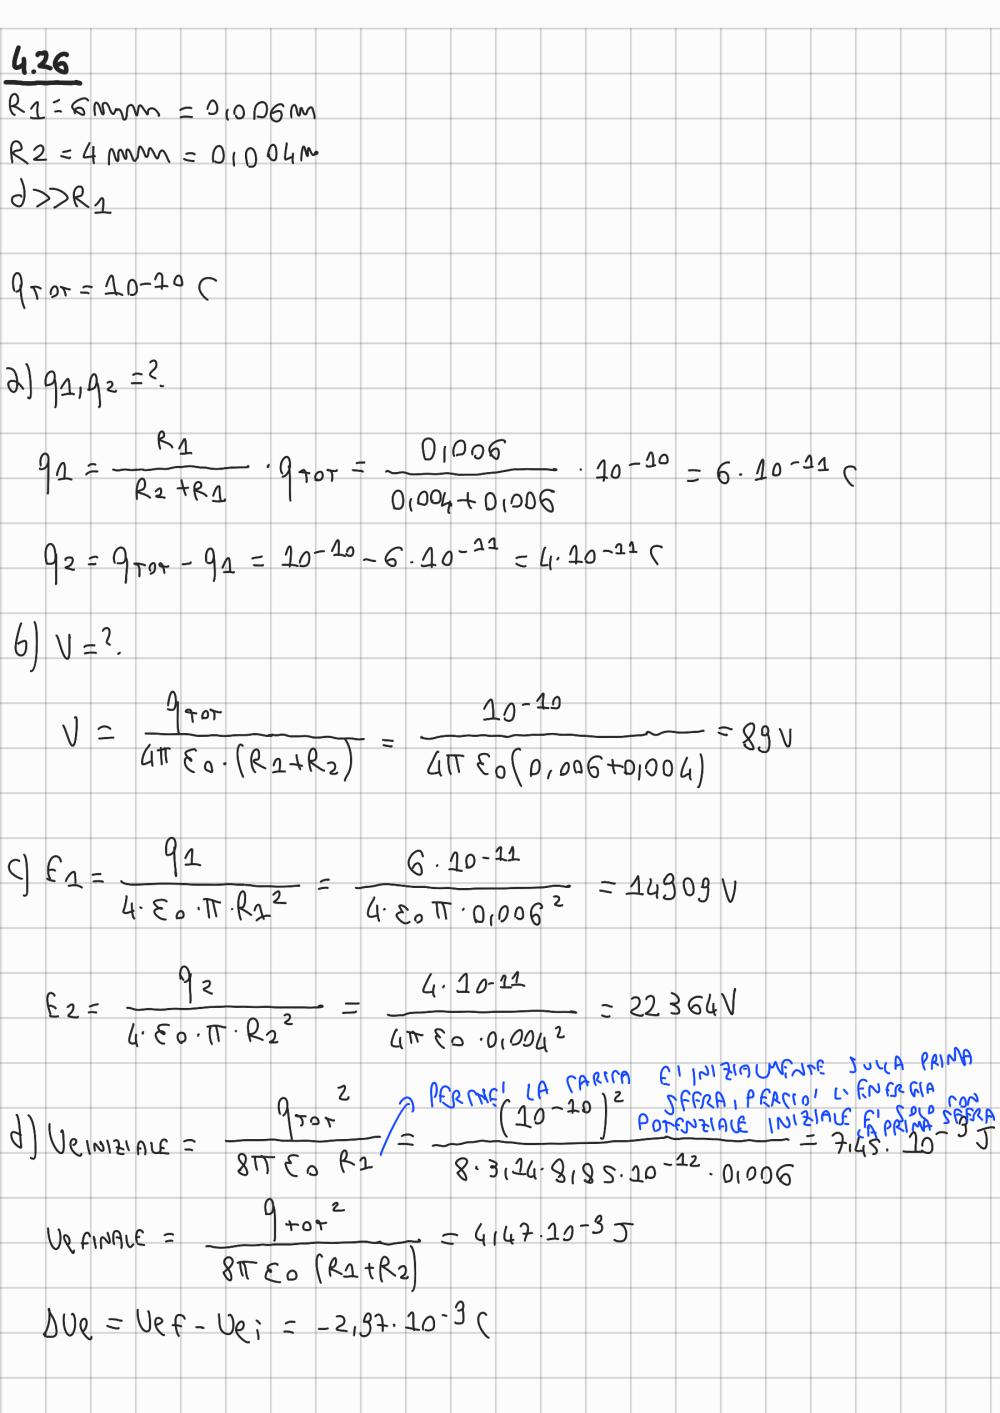 4.26
R1 = 6 mm = 0,006 m
R2 = 4 mm = 0,004 m
d >> R1
qTOT = 10^-10 C
a) q1, q2 = ?.
q1 = R1 / (R2 + R1) · qTOT = 0,006 / (0,004 + 0,006) · 10^-10 = 6 · 10^-11 C
q2 = qTOT - q1 = 10^-10 - 6 · 10^-11 = 4 · 10^-11 C
b) V = ?.
V = qTOT / (4π ε0 · (R1 + R2)) = 10^-10 / (4π ε0 (0,006 + 0,004)) = 89 V
c) E1 = q1 / (4 · ε0 · π · R1^2) = 6 · 10^-11 / (4 · ε0 π · 0,006^2) = 14909 V
E2 = q2 / (4 · ε0 · π · R2^2) = 4 · 10^-11 / (4π ε0 · 0,004^2) = 22364 V
PERCHE' LA CARICA E' INIZIALMENTE SULLA PRIMA
SFERA, PERCIO' L'ENERGIA
POTENZIALE INIZIALE E' SOLO CON
LA PRIMA SFERA
d) Ue INIZIALE = qTOT^2 / (8π ε0 R1) = (10^-10)^2 / (8 · 3,14 · 8,85 · 10^-12 · 0,006) = 7,45 · 10^-9 J
Ue FINALE = qTOT^2 / (8π ε0 (R1 + R2)) = 4,47 · 10^-9 J
ΔUe = Uef - Uei = -2,97 · 10^-9 C